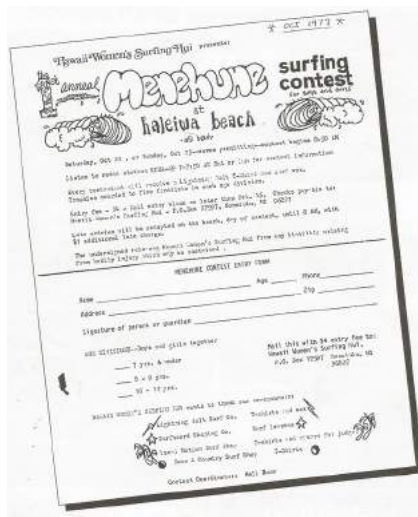 * OCT 1977 *
Hawaii Women's Surfing Hui presents:
the 1st annual Menehune surfing contest
for boys and girls
at
haleiwa beach
Saturday, Oct 22, or Sunday, Oct 23—waves permitting—contest begins 8:30 AM
Listen to radio station for contest information
Every contestant will receive a Lightning Bolt T-shirt and surf wax.
Trophies awarded to five finalists in each age division.
Entry fee - $4 - Mail entry blank no later than Oct. 15. Checks payable to:
Hawaii Women's Surfing Hui - P.O. Box 17507, Honolulu, HI 96817
Late entries will be accepted on the beach, day of contest, until 8 AM, with
$1 additional late charge.
The undersigned release Hawaii Women's Surfing Hui from any liability arising
from bodily injury which may be sustained.
MENEHUNE CONTEST ENTRY FORM
Name Age Phone
Address Zip
Signature of parent or guardian
AGE DIVISIONS--Boys and girls together
7 yrs. & under
8 - 9 yrs.
10 - 12 yrs.
Mail this with $4 entry fee to:
Hawaii Women's Surfing Hui.
P.O. Box 17507 Honolulu, HI
96817
HAWAII WOMEN'S SURFING HUI wants to thank our co-sponsors:
Lightning Bolt Surf Co. T-shirts and wax
Surfboard Shaping Co. Surf lessons
Local Motion Surf Shop T-shirts and for judges
Town & Country Surf Shop T-Shirts
Contest Coordinator: